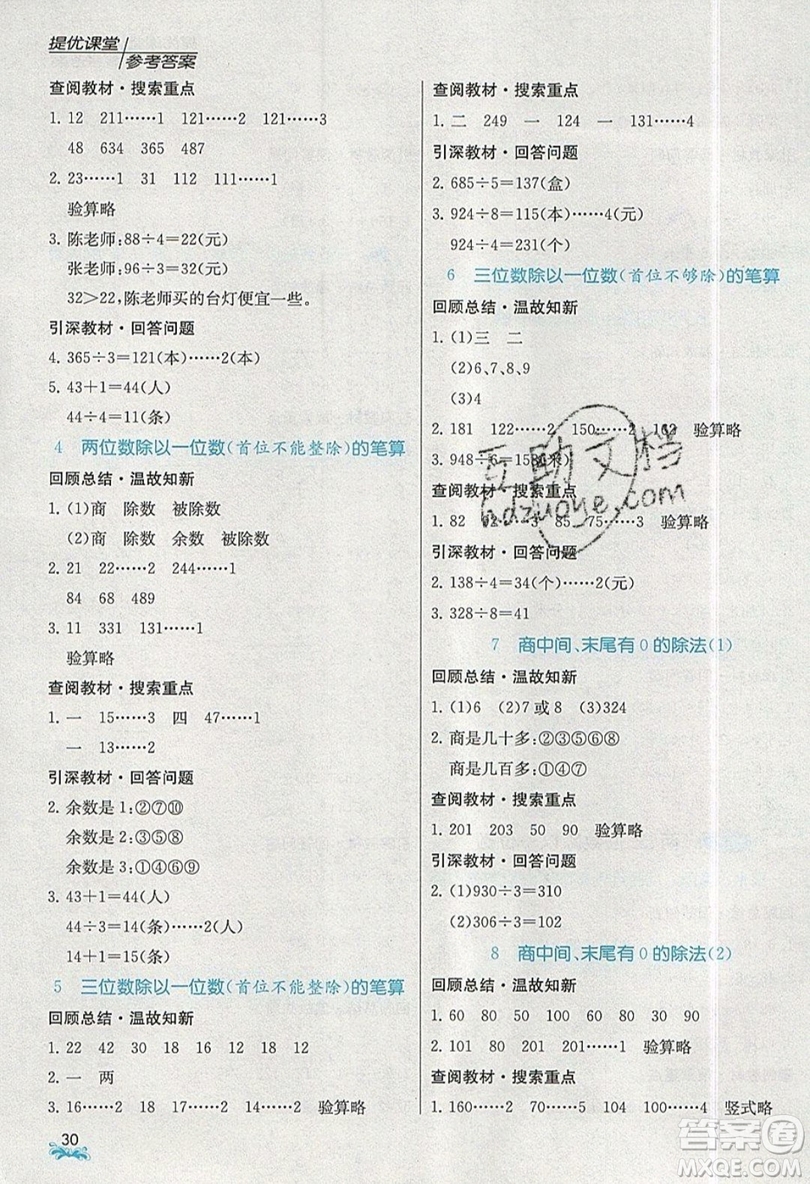 提优课堂
参考答案
查阅教材·搜索重点
1. 12　211……1　121……2　121……3
48　634　365　487
2. 23……1　31　112　111……1
验算略
3. 陈老师:88÷4=22(元)
张老师:96÷3=32(元)
32>22,陈老师买的台灯便宜一些。
引深教材·回答问题
4. 365÷3=121(本)……2(本)
5. 43+1=44(人)
44÷4=11(条)
4　两位数除以一位数(首位不能整除)的笔算
回顾总结·温故知新
1. (1)商　除数　被除数
(2)商　除数　余数　被除数
2. 21　22……2　244……1
84　68　489
3. 11　331　131……1
验算略
查阅教材·搜索重点
1. 一　15……3　四　47……1
一　13……2
引深教材·回答问题
2. 余数是1:②⑦⑩
余数是2:③⑤⑧
余数是3:①④⑥⑨
3. 43+1=44(人)
44÷3=14(条)……2(人)
14+1=15(条)
5　三位数除以一位数(首位不能整除)的笔算
回顾总结·温故知新
1. 22　42　30　18　16　12　18　12
2. 一　两
3. 16……2　18　17……2　14……2　验算略
30
查阅教材·搜索重点
1. 二　249　一　124　一　131……4
引深教材·回答问题
2. 685÷5=137(盒)
3. 924÷8=115(本)……4(元)
924÷4=231(个)
6　三位数除以一位数(首位不够除)的笔算
回顾总结·温故知新
1. (1)三　二
(2)6、7、8、9
(3)4
2. 181　122……2　150……2　163　验算略
3. 948÷6=158(米)
查阅教材·搜索重点
1. 82　62……3　85　75……3　验算略
引深教材·回答问题
2. 138÷4=34(个)……2(元)
3. 328÷8=41
7　商中间、末尾有0的除法(1)
回顾总结·温故知新
1. (1)6　(2)7或8　(3)324
2. 商是几十多:②③⑤⑥⑧
商是几百多:①④⑦
查阅教材·搜索重点
1. 201　203　50　90　验算略
引深教材·回答问题
2. (1)930÷3=310
(2)306÷3=102
8　商中间、末尾有0的除法(2)
回顾总结·温故知新
1. 60　80　50　100　60　80　30　90
2. 101　80　201　201……1　验算略
查阅教材·搜索重点
1. 160……2　70……5　104　100……4　竖式略
互助文档
hdzuoye.com
答案圈
MXQE.COM